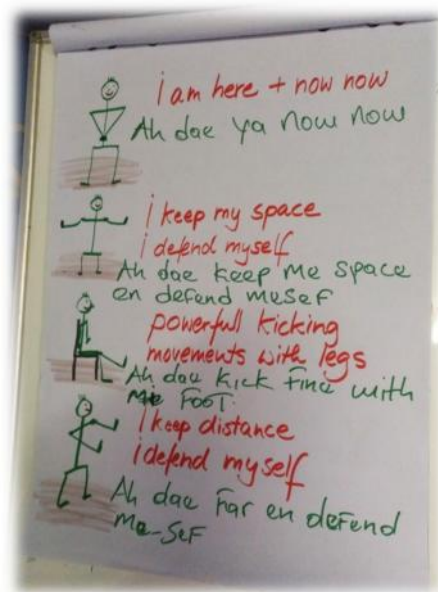 i am here + now now
Ah dae ya now now
i keep my space
i defend myself
Ah dae keep me space
en defend mesef
powerfull kicking
movements with legs
Ah dae kick fine with
me foot.
i keep distance
i defend myself
Ah dae far en defend
me-sef